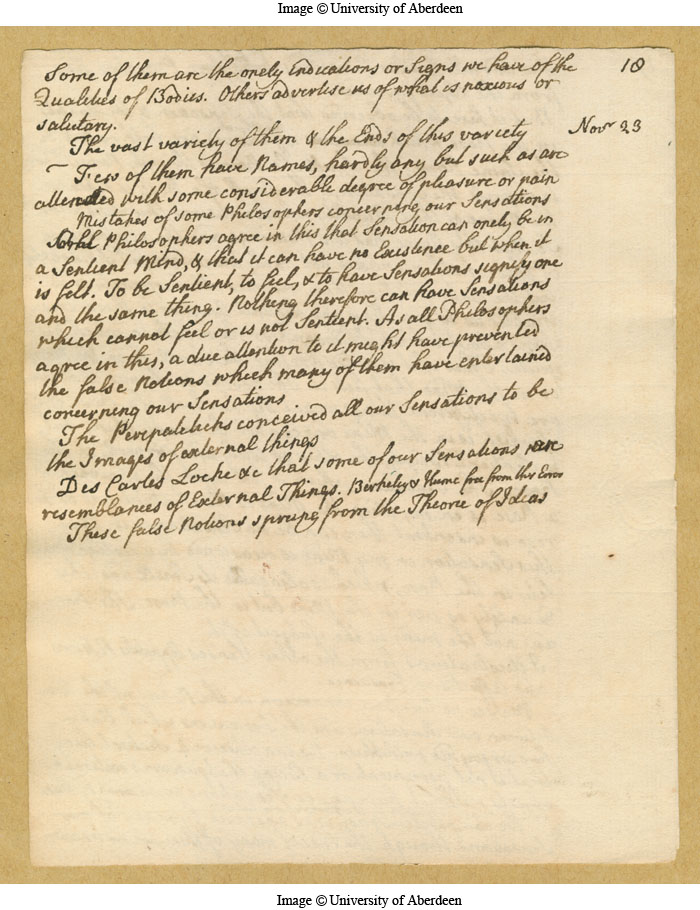 Image © University of Aberdeen
18
Some of them are the onely Indications or Signs we have of the
Qualities of Bodies. Others advertise us of what is noxious or
salutary.
Novr 23
The vast variety of them & the Ends of this variety
Few of them have Names, hardly any but such as are
attended with some considerable degree of pleasure or pain
Mistakes of some Philosophers concerning our Sensations
Philosophers agree in this that Sensation can onely be in
a Sentient Mind, & that it can have no Existence but when it
is felt. To be Sentient, to feel, & to have Sensations signify one
and the same thing. Nothing therefore can have Sensations
which cannot feel or is not Sentient. As all Philosophers
agree in this, a due attention to it might have prevented
the false Notions which many of them have entertained
concerning our Sensations
The Peripateticks conceived all our Sensations to be
the Images of external things
Des Cartes Locke &c that some of our Sensations are
resemblances of External Things. Berkeley & Hume free from this Error
These false Notions sprung from the Theorie of Ideas
Image © University of Aberdeen